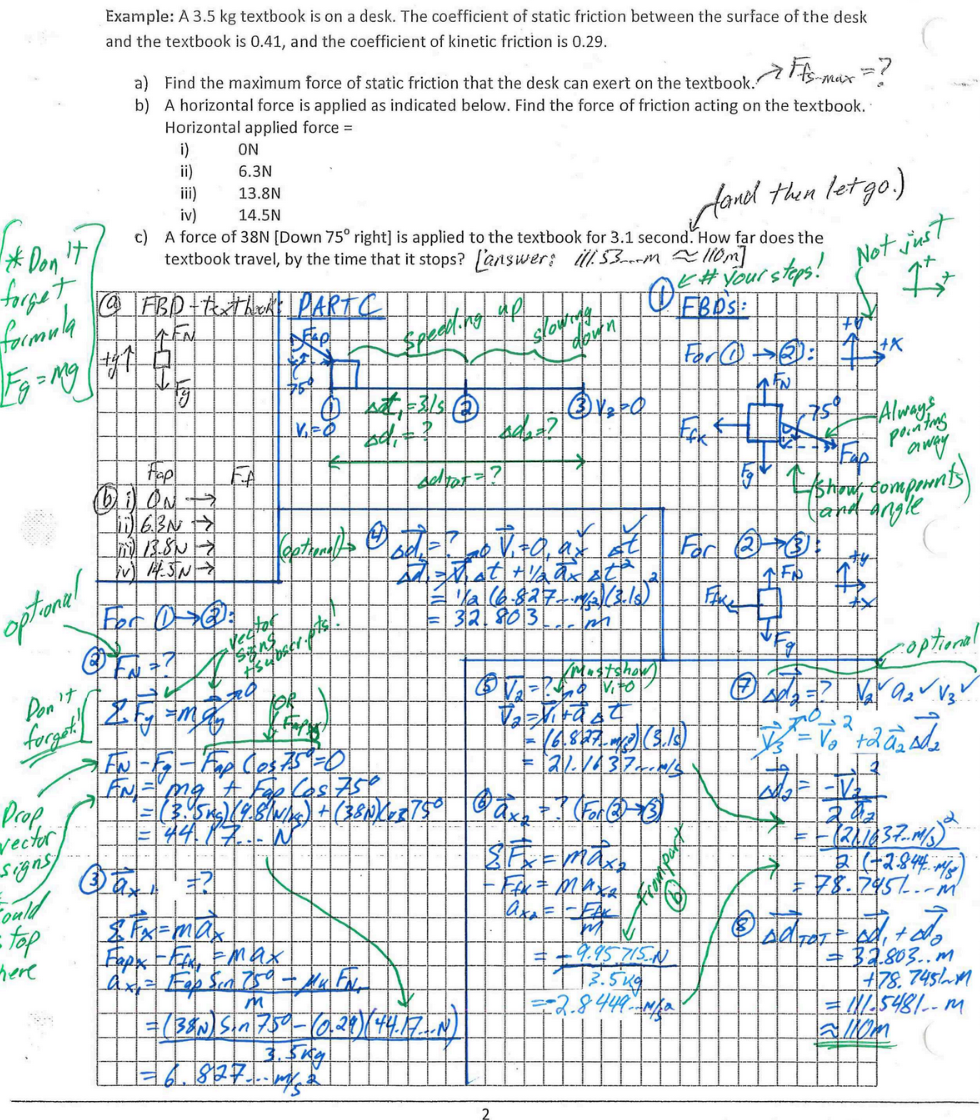 Example: A 3.5 kg textbook is on a desk. The coefficient of static friction between the surface of the desk
and the textbook is 0.41, and the coefficient of kinetic friction is 0.29.
a) Find the maximum force of static friction that the desk can exert on the textbook. → Ffs-max = ?
b) A horizontal force is applied as indicated below. Find the force of friction acting on the textbook.
Horizontal applied force =
i) 0N
ii) 6.3N
iii) 13.8N
iv) 14.5N
(and then let go.)
c) A force of 38N [Down 75° right] is applied to the textbook for 3.1 second. How far does the
textbook travel, by the time that it stops? [answer: 111.53...m ≈ 110m]
* Don't
forget
formula
Fg = mg
① ← # your steps!
Not just
+
+
ⓐ FBD - textbook:
FN
+y↑
Fg
PART C
Fap
75°
speeding up
slowing
down
① Δt₁=3.1s ② ③ V₃=0
V₁=0 Δd₁=? Δd₂=?
ΔdTOT=?
FBDs:
For ① → ②:
+y
+X
FN
75°
Ffk
Fap
Fg
Always
pointing
away
(Show components
and angle)
Fap Ff
ⓑ i) 0N →
ii) 6.3N →
iii) 13.8N →
iv) 14.5N →
(optional)→ ④ Δd₁=? V₁=0, ax Δt
Δd₁ = V₁Δt + ½ ax Δt²
= ½ (6.827...m/s²)(3.1s)²
= 32.803... m
For ② → ③:
+y
+x
FN
Ffk
Fg
optional
For ①→②:
② FN = ?
vector
signs
+ subscripts!
Don't
forget!
ΣFy = may 0
(OR
Fapy)
FN - Fg - Fap Cos 75° = 0
FN₁ = mg + Fap Cos 75°
= (3.5kg)(9.81N/kg) + (38N)Cos75°
= 44.17... N
Drop
vector
signs
Could
stop
here
③ ax₁ = ?
ΣFx = max
Fapx - Ffk₁ = max
ax₁ = Fap Sin 75° - μk FN₁
m
= (38N) Sin 75° - (0.29)(44.17...N)
3.5kg
= 6.827... m/s²
⑤ V₂ = ? (Must show)
V₁=0
V₂ = V₁ + a Δt
= (6.827...m/s²)(3.1s)
= 21.1637...m/s
⑥ ax₂ = ? (For ②→③)
ΣFx = max₂
- Ffk = max₂
ax₂ = -Ffk
m
From part
ⓑ
= -9.95715 N
3.5kg
= -2.8449...m/s²
optional
⑦ Δd₂ = ? V₂ a₂ V₃
V₃² = V₂² + 2a₂ Δd₂
Δd₂ = -V₂²
2a₂
= -(21.1637...m/s)²
2 (-2.844...m/s²)
= 78.7451...m
⑧ ΔdTOT = Δd₁ + Δd₂
= 32.803...m
+ 78.745...m
= 111.5481...m
≈ 110m
2